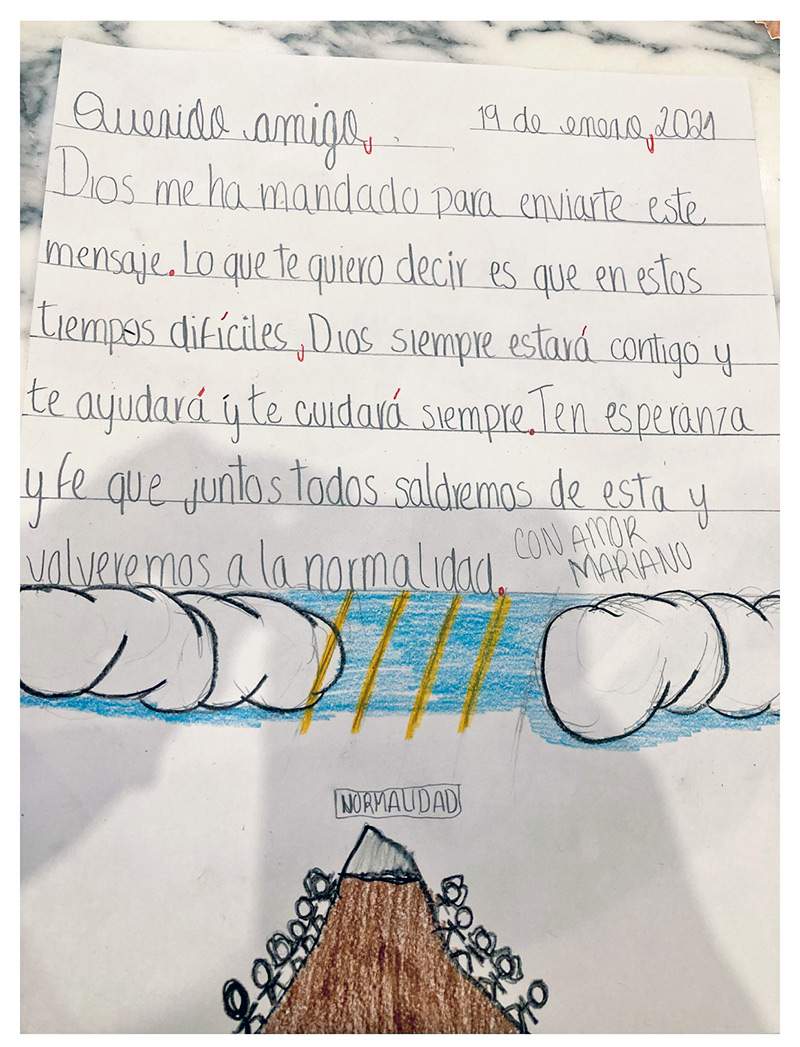 Querido amigo, 19 de enero, 2021
Dios me ha mandado para enviarte este
mensaje. Lo que te quiero decir es que en estos
tiempos difíciles, Dios siempre estará contigo y
te ayudará y te cuidará siempre. Ten esperanza
y fe que juntos todos saldremos de esta y
volveremos a la normalidad.
CON AMOR
MARIANO
NORMALIDAD